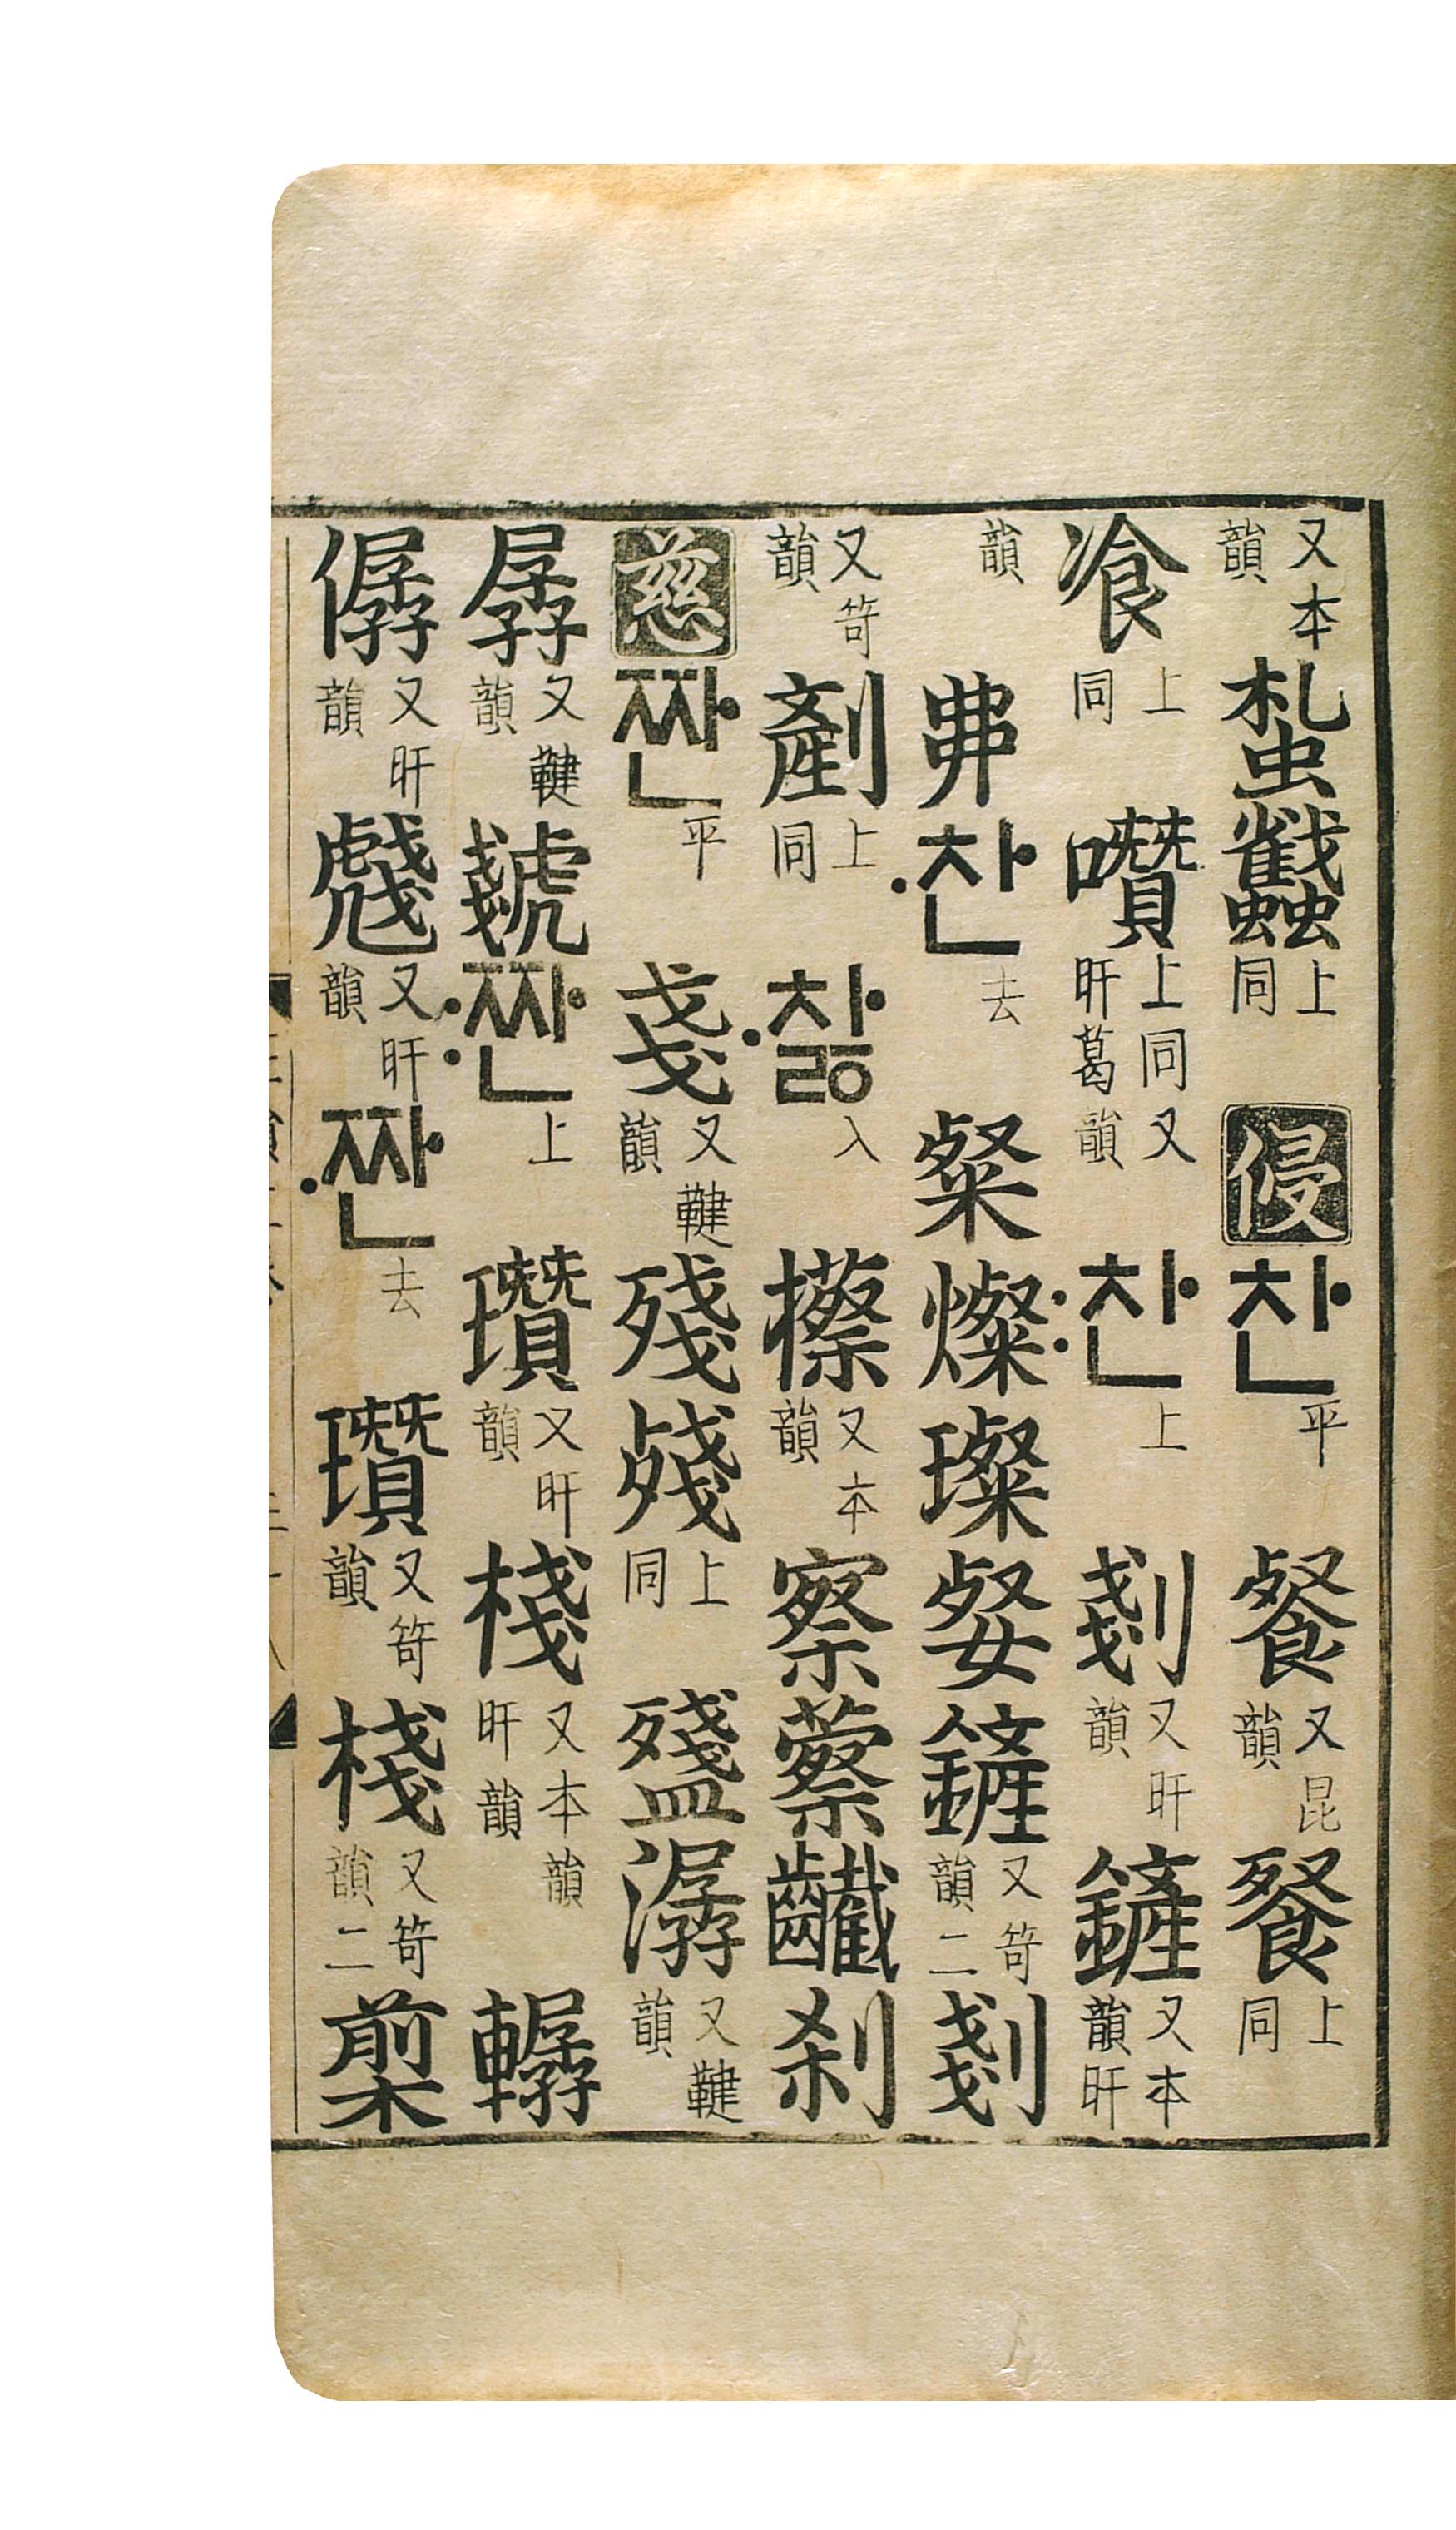 又本韻 蚻 上同 侵 찬 平 餐 又昆韻 上同
飡 上同 囋 上同又旰葛韻 찬 上 剗 又旰韻 鏟 又本韻旰
韻 찬 去 粲 燦 璨 㛑 鏟 又笴韻二 剗
又笴韻 剷 上同 차ᇙ 入 攃 又本韻 察 刹
慈 짠 平 戔 又鞬韻 殘 上同 潺 又鞬韻
孱 又鞬韻 虥 짠 上 瓚 又旰韻 棧 又本韻旰韻 轏
僝 又旰韻 虦 又旰韻 짠 去 瓚 又笴韻 棧 又笴韻二